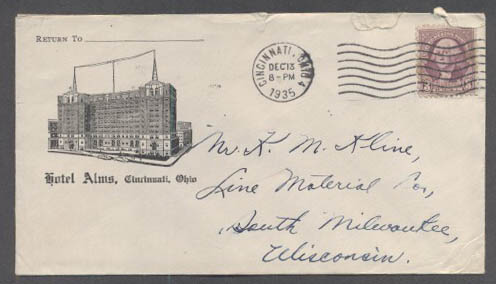 RETURN TO
CINCINNATI, OHIO 4
DEC 13
8-PM
1935
Hotel Alms, Cincinnati, Ohio
Mr. K. M. Kline,
Line Material Co.,
South Milwaukee,
Wisconsin.